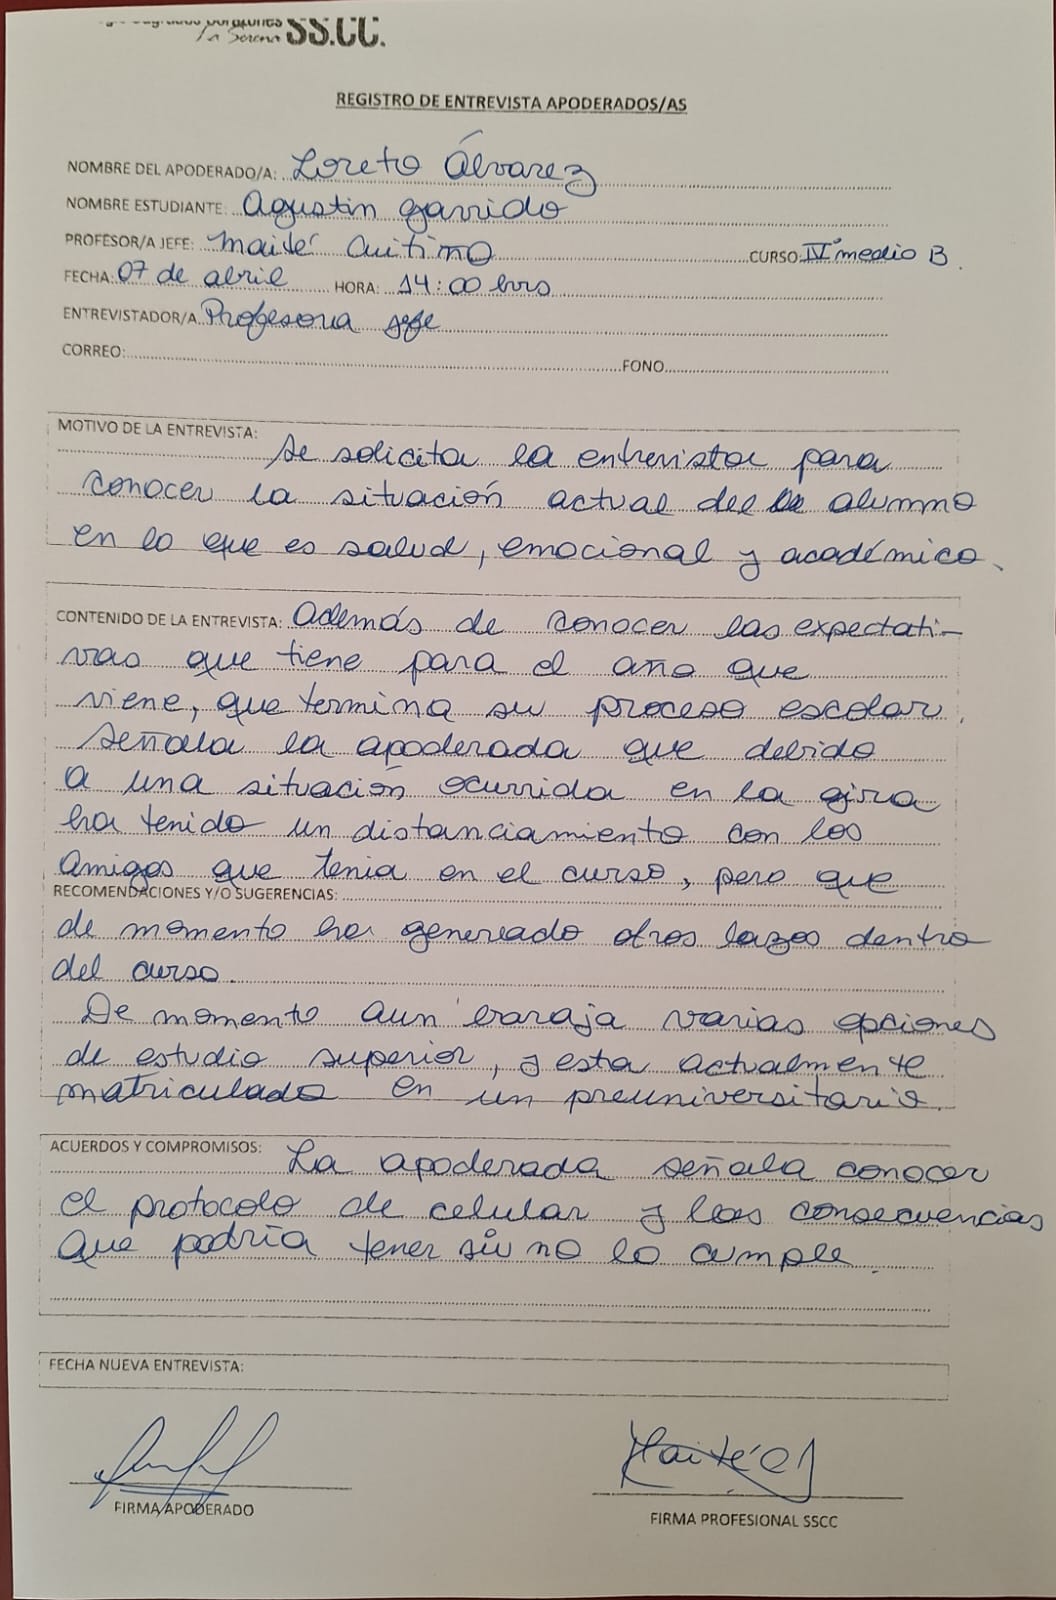 Sagrados Corazones
La Serena SS.CC.
REGISTRO DE ENTREVISTA APODERADOS/AS
NOMBRE DEL APODERADO/A: Loreto Álvarez
NOMBRE ESTUDIANTE: Agustin Garrido
PROFESOR/A JEFE: Maité CURSO: IV° medio B.
FECHA: 07 de abril HORA: 14:00 hrs
ENTREVISTADOR/A Profesora jefe
CORREO: FONO
MOTIVO DE LA ENTREVISTA:
Se solicita la entrevista para
conocer la situación actual del alumno
en lo que es salud, emocional y académico.
CONTENIDO DE LA ENTREVISTA: Además de conocer las expectati-
vas que tiene para el año que
viene, que termina su proceso escolar.
Señala la apoderada que debido
a una situación ocurrida en la gira
ha tenido un distanciamiento con los
amigos que tenia en el curso, pero que
RECOMENDACIONES Y/O SUGERENCIAS:
de momento ha generado otros lazos dentro
del curso.
De momento aun baraja varias opciones
de estudio superior, y esta actualmente
matriculado en un preuniversitario.
ACUERDOS Y COMPROMISOS: La apoderada señala conocer
el protocolo de celular y las consecuencias
que podría tener si no lo cumple.
FECHA NUEVA ENTREVISTA:
Maité
FIRMA APODERADO
FIRMA PROFESIONAL SSCC